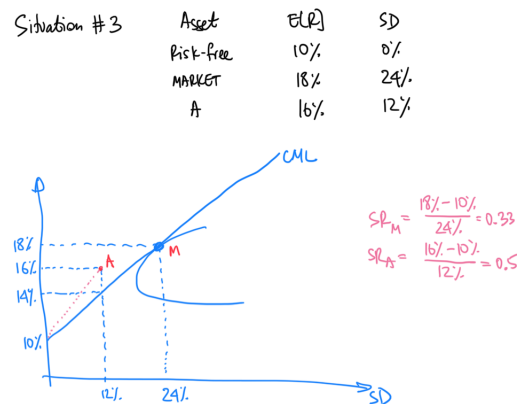 Situation #3 Asset E[R] SD
Risk-free 10% 0%
MARKET 18% 24%
A 16% 12%
CML
18%
M
16%
A
14%
10%
12%
24%
SD
SR_M = 18% - 10% / 24% = 0.33
SR_A = 16% - 10% / 12% = 0.5